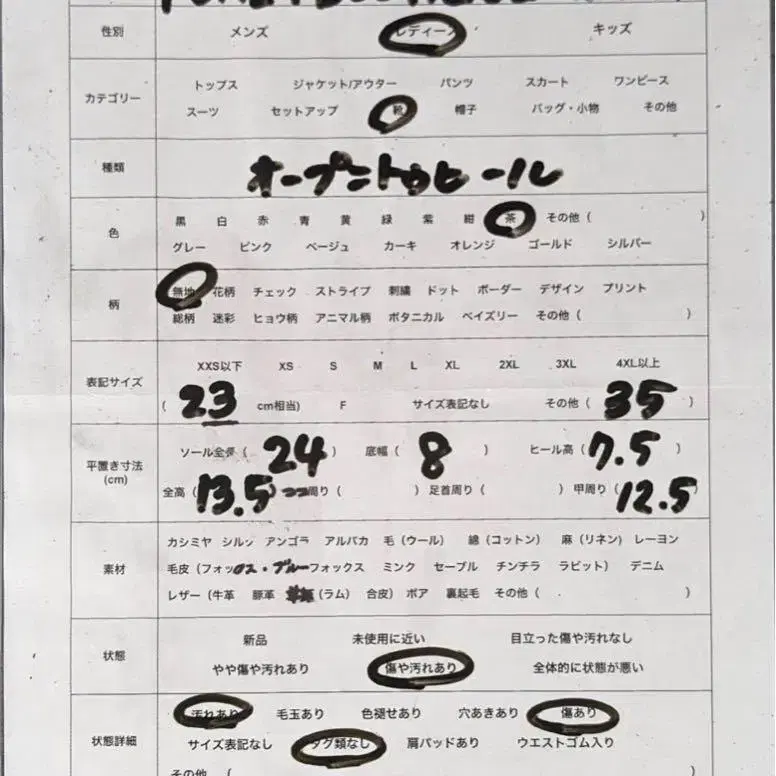 性別 メンズ レディース キッズ
カテゴリー トップス ジャケット/アウター パンツ スカート ワンピース
スーツ セットアップ 靴 帽子 バッグ・小物 その他
種類 オープントゥヒール
色 黒 白 赤 青 黄 緑 紫 紺 茶 その他( )
グレー ピンク ベージュ カーキ オレンジ ゴールド シルバー
柄 無地 花柄 チェック ストライプ 刺繍 ドット ボーダー デザイン プリント
総柄 迷彩 ヒョウ柄 アニマル柄 ボタニカル ペイズリー その他( )
表記サイズ XXS以下 XS S M L XL 2XL 3XL 4XL以上
( 23 cm相当) F サイズ表記なし その他( 35 )
平置き寸法 (cm) ソール全長( 24 ) 底幅( 8 ) ヒール高( 7.5 )
全高( 13.5 ) 周り( ) 足首周り( ) 甲周り( 12.5 )
素材 カシミヤ シルク アンゴラ アルパカ 毛(ウール) 綿(コットン) 麻(リネン) レーヨン
毛皮(フォックス・ブルーフォックス ミンク セーブル チンチラ ラビット) デニム
レザー(牛革 豚革 (ラム) 合皮) ボア 裏起毛 その他( )
状態 新品 未使用に近い 目立った傷や汚れなし
やや傷や汚れあり 傷や汚れあり 全体的に状態が悪い
状態詳細 汚れあり 毛玉あり 色褪せあり 穴あきあり 傷あり
サイズ表記なし タグ類なし 肩パッドあり ウエストゴム入り
その他(